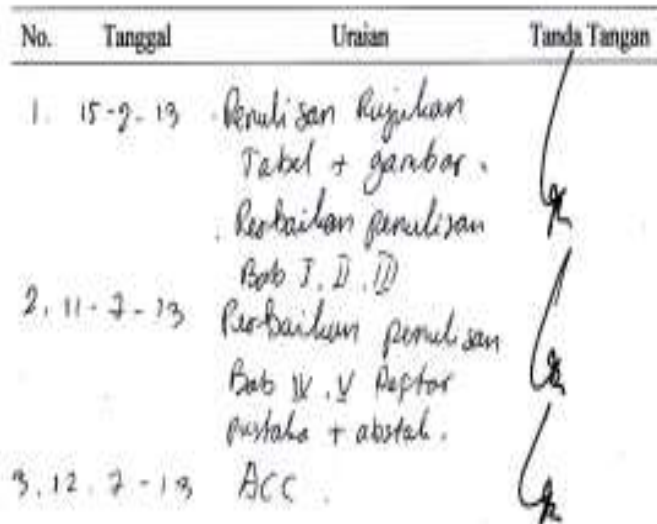 No. Tanggal Uraian Tanda Tangan
1. 15-2-13 . Penulisan Rujukan
Tabel + gambar.
. Perbaikan penulisan
Bab I, II, III
2. 11-7-13 Perbaikan penulisan
Bab IV, V Daftar
pustaka + abstak.
3. 12.7-13 ACC.